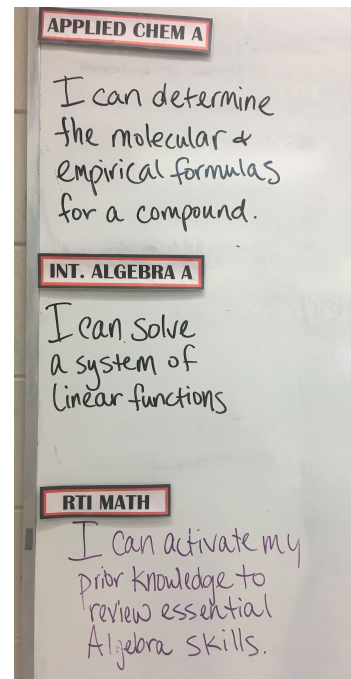 APPLIED CHEM A
I can determine
the molecular &
empirical formulas
for a compound.
INT. ALGEBRA A
I can solve
a system of
linear functions
RTI MATH
I can activate my
prior knowledge to
review essential
Algebra skills.